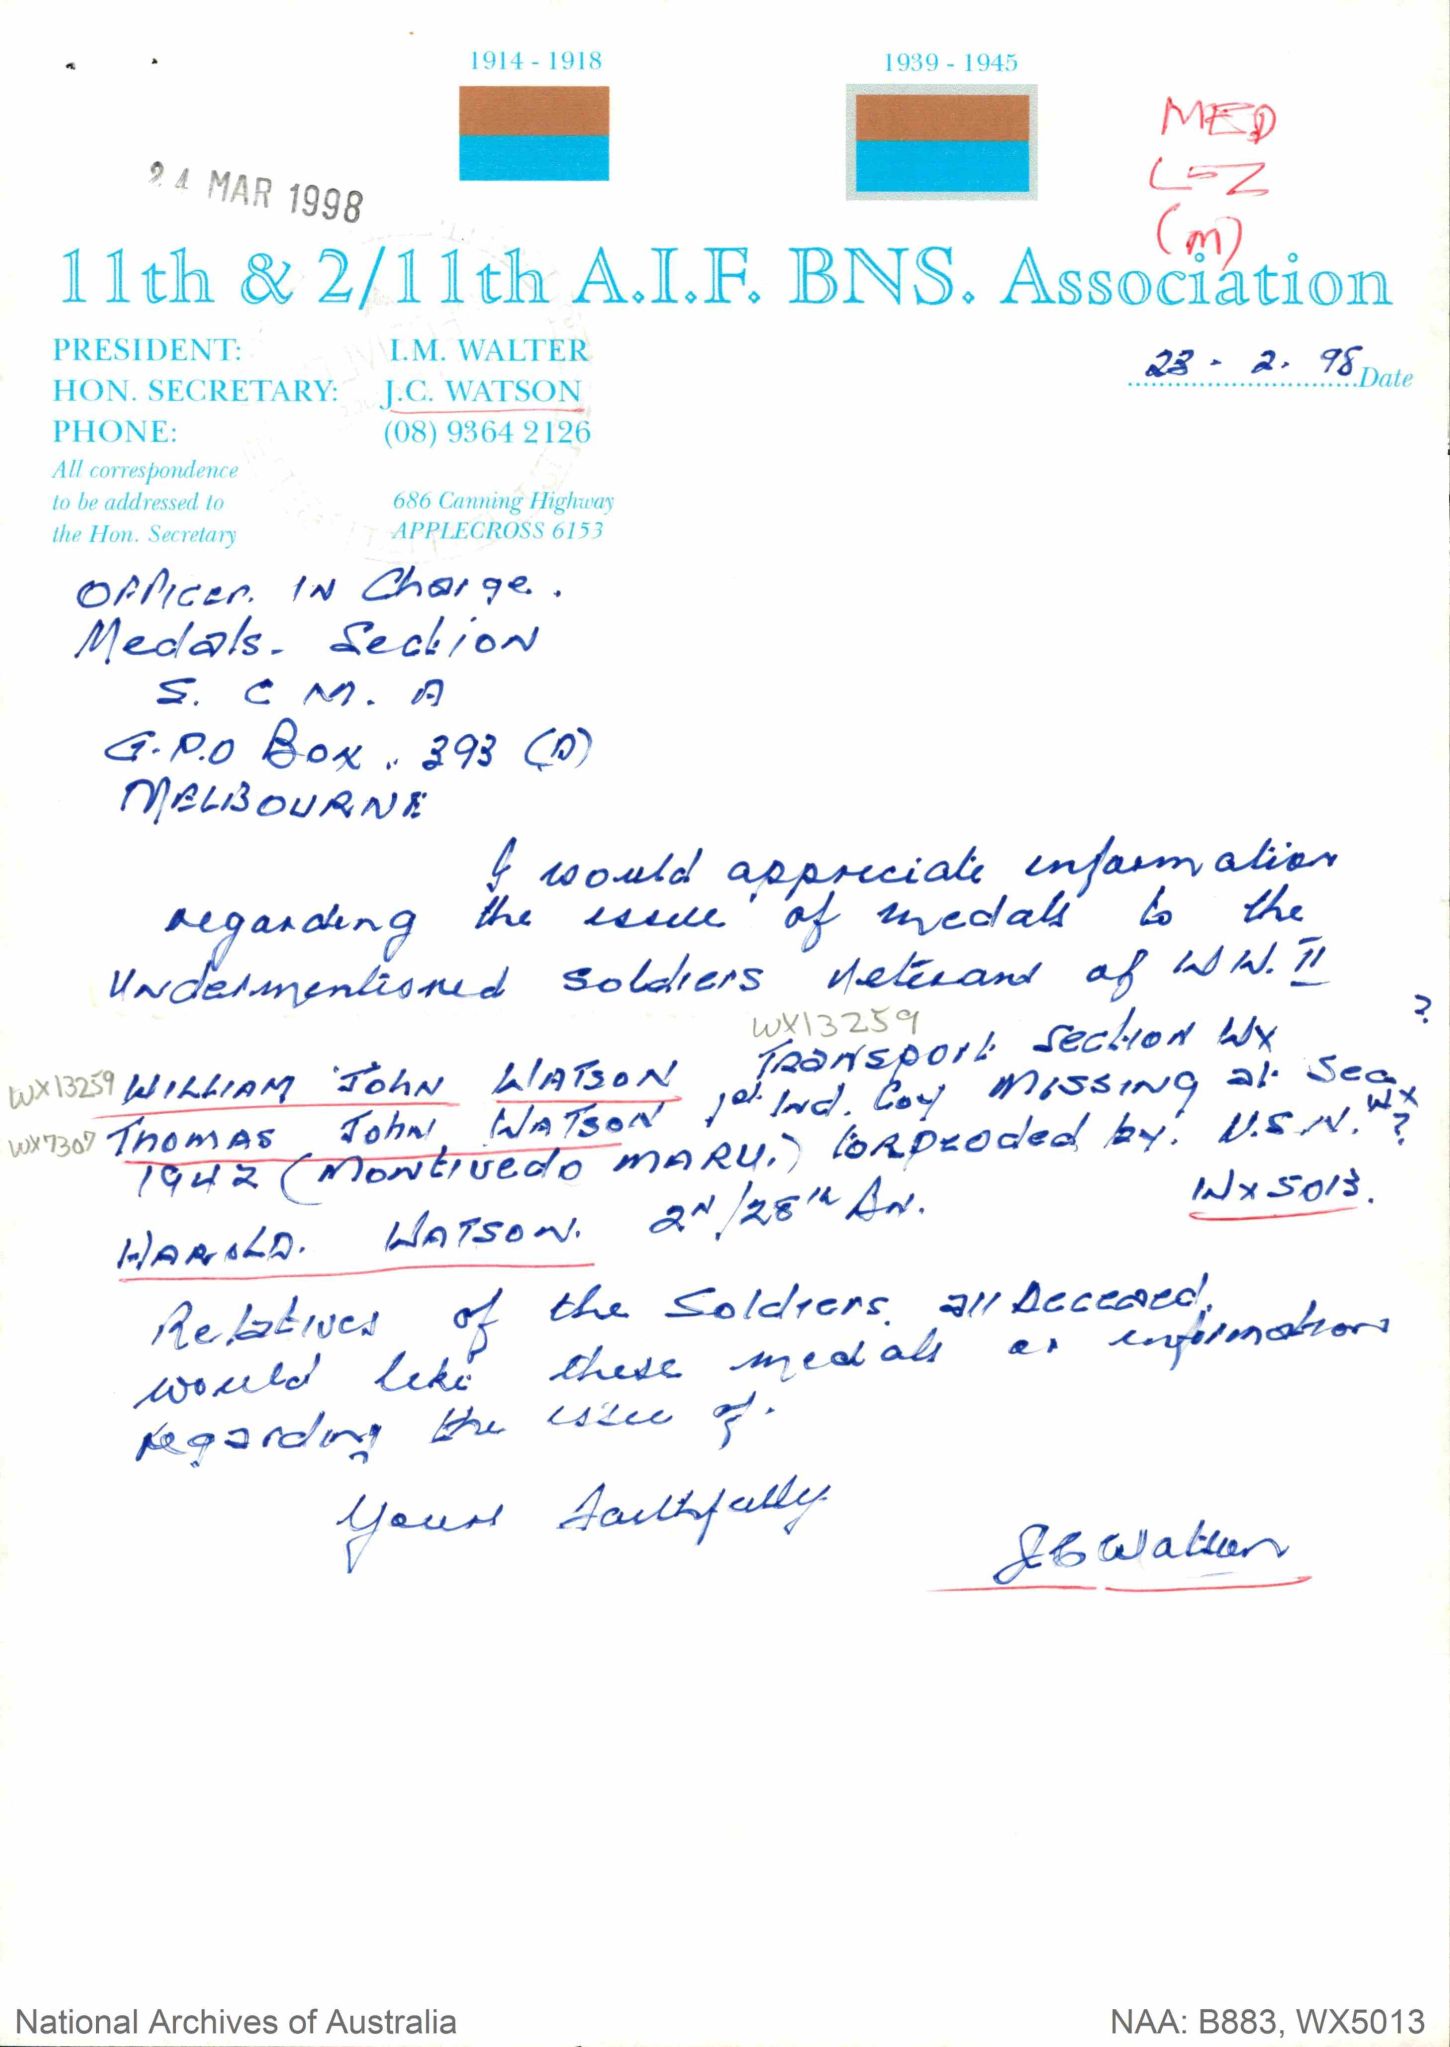 1914 - 1918
1939 - 1945
MED
L-Z
(M)
24 MAR 1998
11th & 2/11th A.I.F. BNS. Association
PRESIDENT: I.M. WALTER
HON. SECRETARY: J.C. WATSON
PHONE: (08) 9364 2126
23 - 2. 98 Date
All correspondence
to be addressed to 686 Canning Highway
the Hon. Secretary APPLECROSS 6153
Officer. IN Charge.
Medals. Section
S. C M. A
G.P.O Box. 393 (D)
MELBOURNE
I would appreciate information
regarding the issue of medals to the
Undermentioned Soldiers Veterans of WW. II
WX13259 ?
WX13259 WILLIAM JOHN WATSON Transport Section WX
WX7307 THOMAS JOHN WATSON 1st Ind. Coy Missing at Sea
1942 (MONTIVEDO MARU.) torpedoded by. U.S.N. WX ?
HAROLD. WATSON. 2N/28th Bn. WX5013.
Relatives of the Soldiers. all Deceased,
would like these medals or information
regarding the issue of.
Yours faithfully
J C Watson
National Archives of Australia
NAA: B883, WX5013